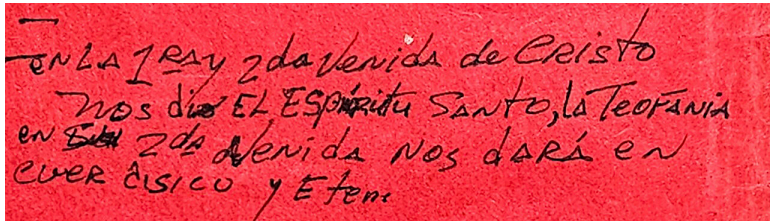 en LA 1RA y 2da Venida de Cristo
Nos dio EL ESpíritu SANTO, lA TEOFANIA
en 2da Venida NOS dARÁ en
CUER y ETER